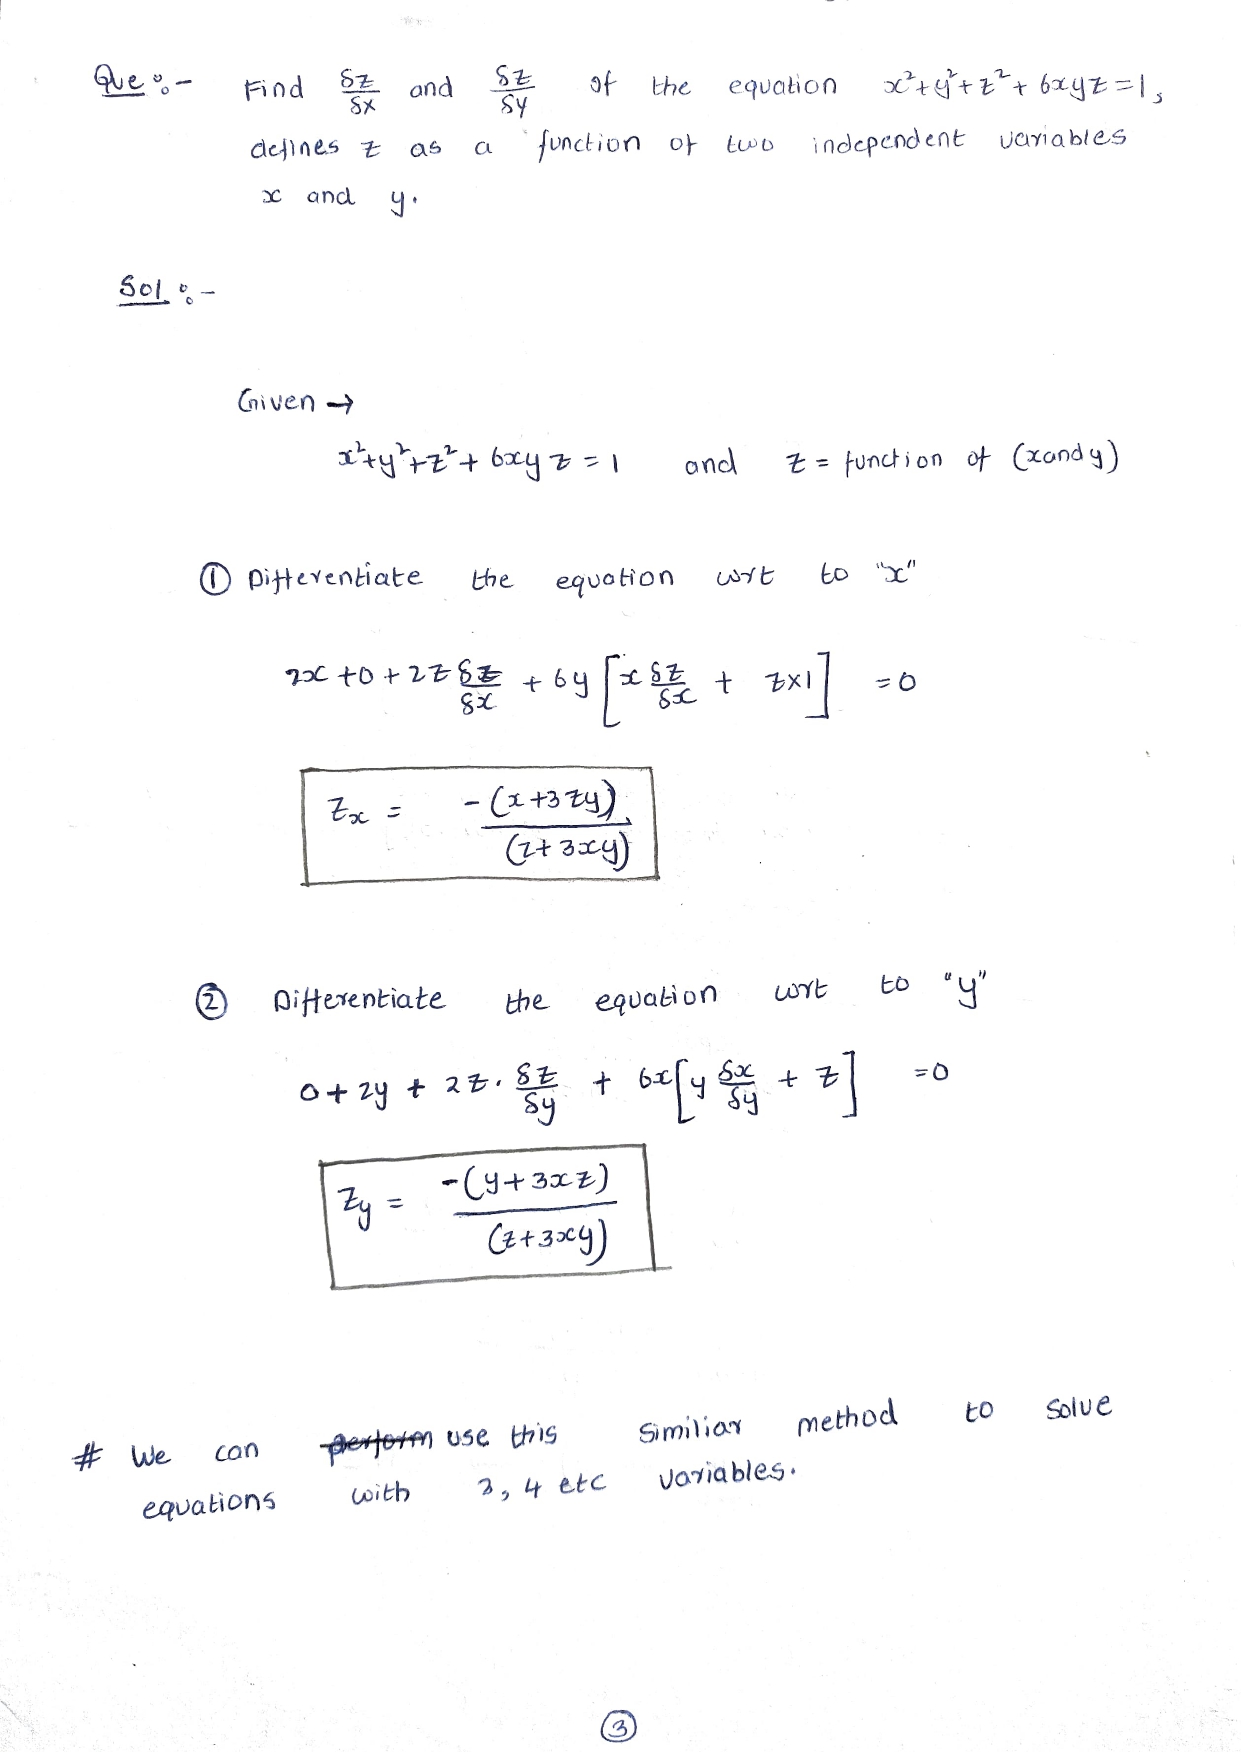 Que :- Find δz/δx and δz/δy of the equation x²+y²+z²+6xyz=1,
defines z as a function of two independent variables
x and y.
Sol :-
Given →
x²+y²+z²+6xyz=1 and z = function of (x and y)
① Differentiate the equation wrt to "x"
2x+0+2z δz/δx + 6y [x δz/δx + z×1] =0
Zx = -(x+3zy)/(z+3xy)
② Differentiate the equation wrt to "y"
0+2y+2z. δz/δy + 6x[y δx/δy + z] =0
Zy = -(y+3xz)/(z+3xy)
# We can perform use this similiar method to solve
equations with 3, 4 etc variables.
③